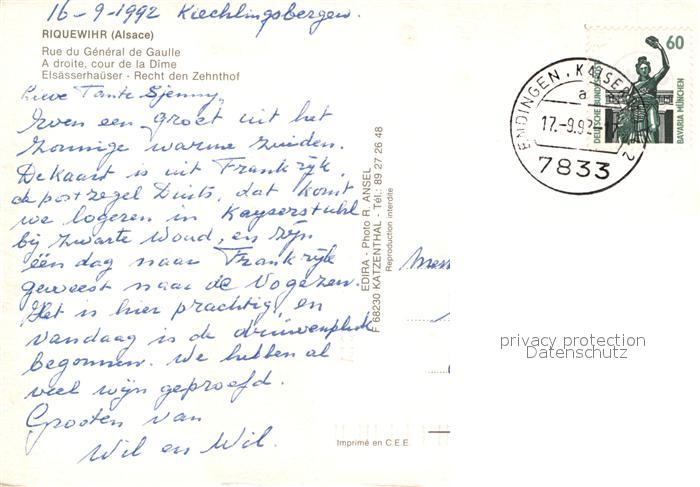 16-9-1992 Kiechlingsbergen.
RIQUEWIHR (Alsace)
Rue du Général de Gaulle
A droite, cour de la Dîme
Elsässerhäuser - Recht den Zehnthof
Lieve Tante Sjenny,
Even een groet uit het
zonnige warme zuiden.
De kaart is uit Frankrijk,
de postzegel Duits, dat komt
we logeren in Kayserstuhl
bij Zwarte Woud, en zijn
één dag naar Frankrijk
geweest naar de Vogezen.
Het is hier prachtig, en
vandaag is de druivenpluk
begonnen. We hebben al
veel wijn geproefd.
Groeten van
Wil en Wil.
EDIRA - Photo R. ANSEL
F 68230 KATZENTHAL - Tél.: 89 27 26 48
Reproduction interdite
Imprimé en C.E.E.
60
DEUTSCHE BUNDESPOST
BAVARIA MÜNCHEN
ENDINGEN, KAISER
a
17.-9.92
2
7833
privacy protection
Datenschutz